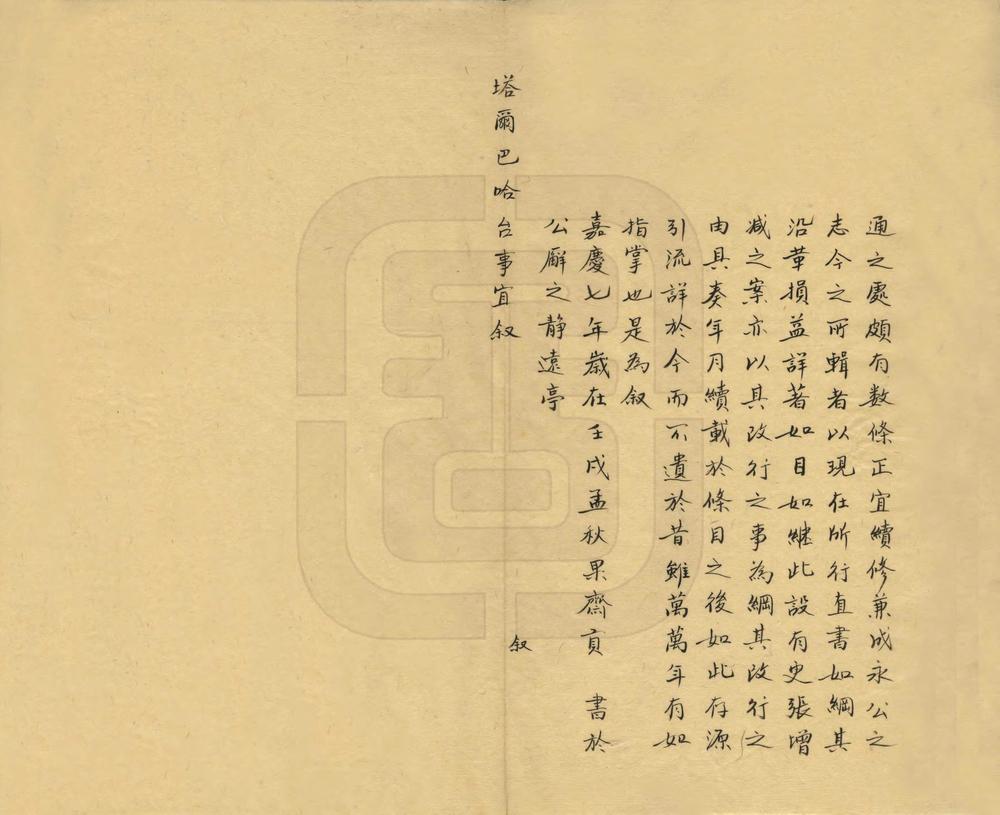 通之處頗有数條正宜續修兼成永公之
志今之所輯者以現在所行直書如綱其
沿革損益詳著如目如継此設有史張增
减之案亦以其改行之事為綱其改行之
由具奏年月續載於條目之後如此存源
引流詳於今而不遺於昔雖萬萬年有如
指掌也是為叙
嘉慶七年歲在壬戌孟秋果齋貢 書於
公廨之静遠亭
塔爾巴哈台事宜叙
叙